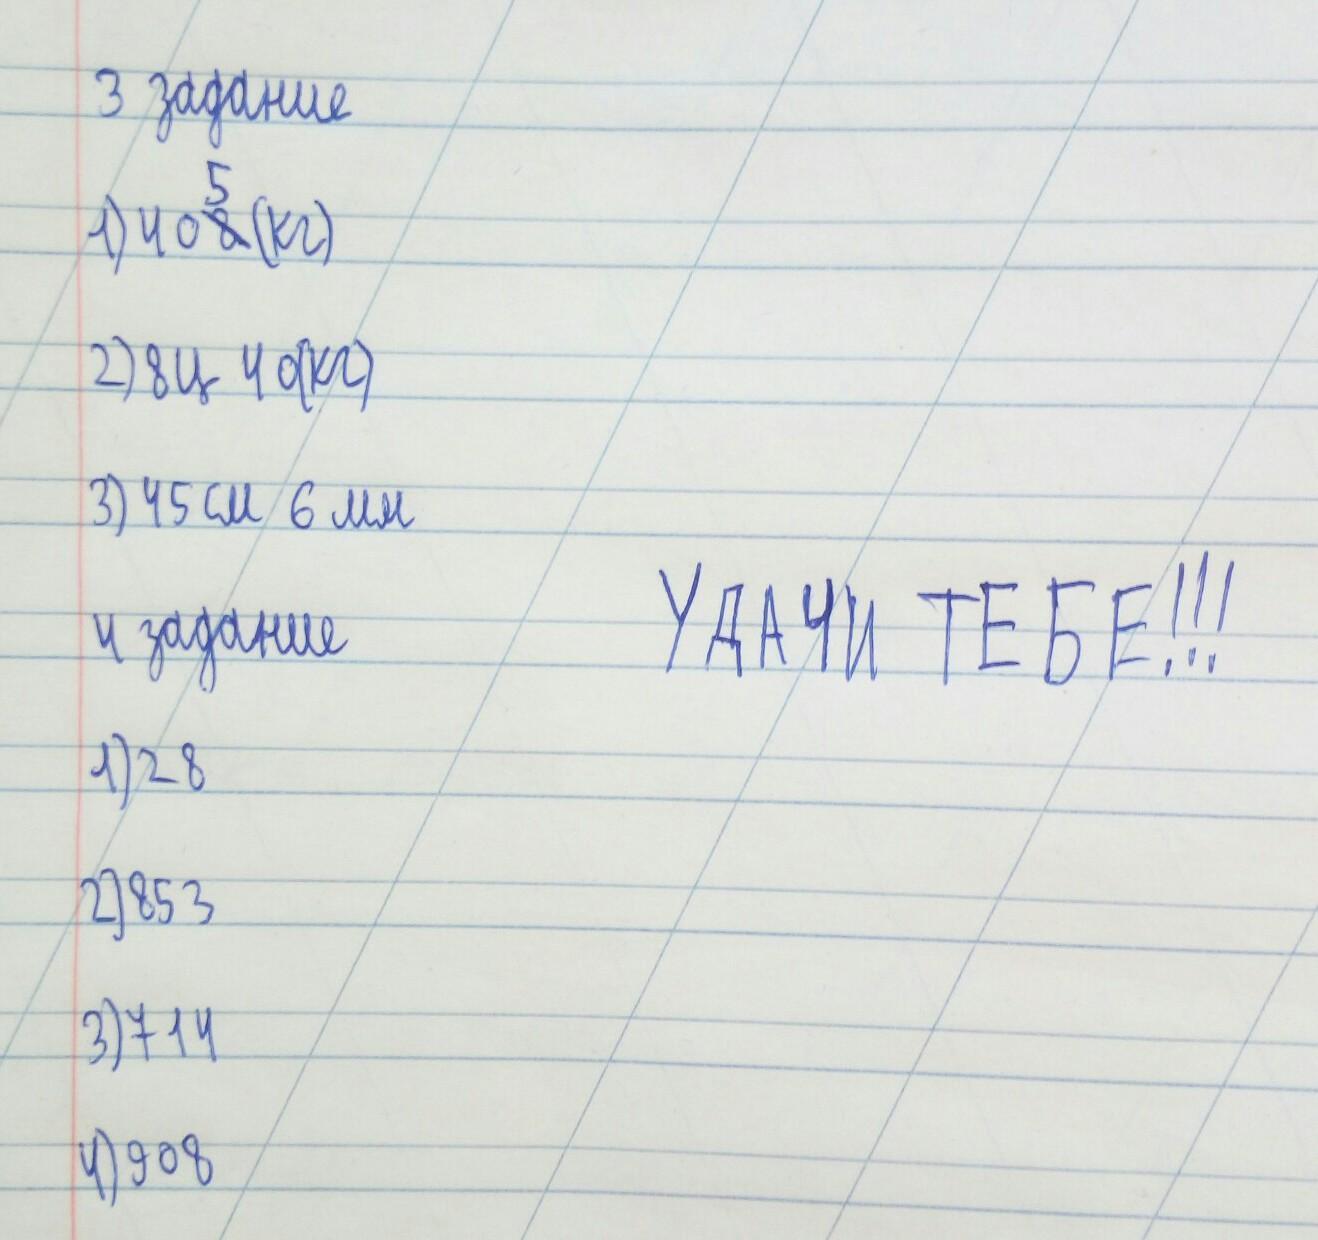 3 задание
1) 405 (кг)
2) 8ц 40(кг)
3) 45 см 6 мм
4 задание
УДАЧИ ТЕБЕ!!!
1) 28
2) 853
3) 714
4) 908